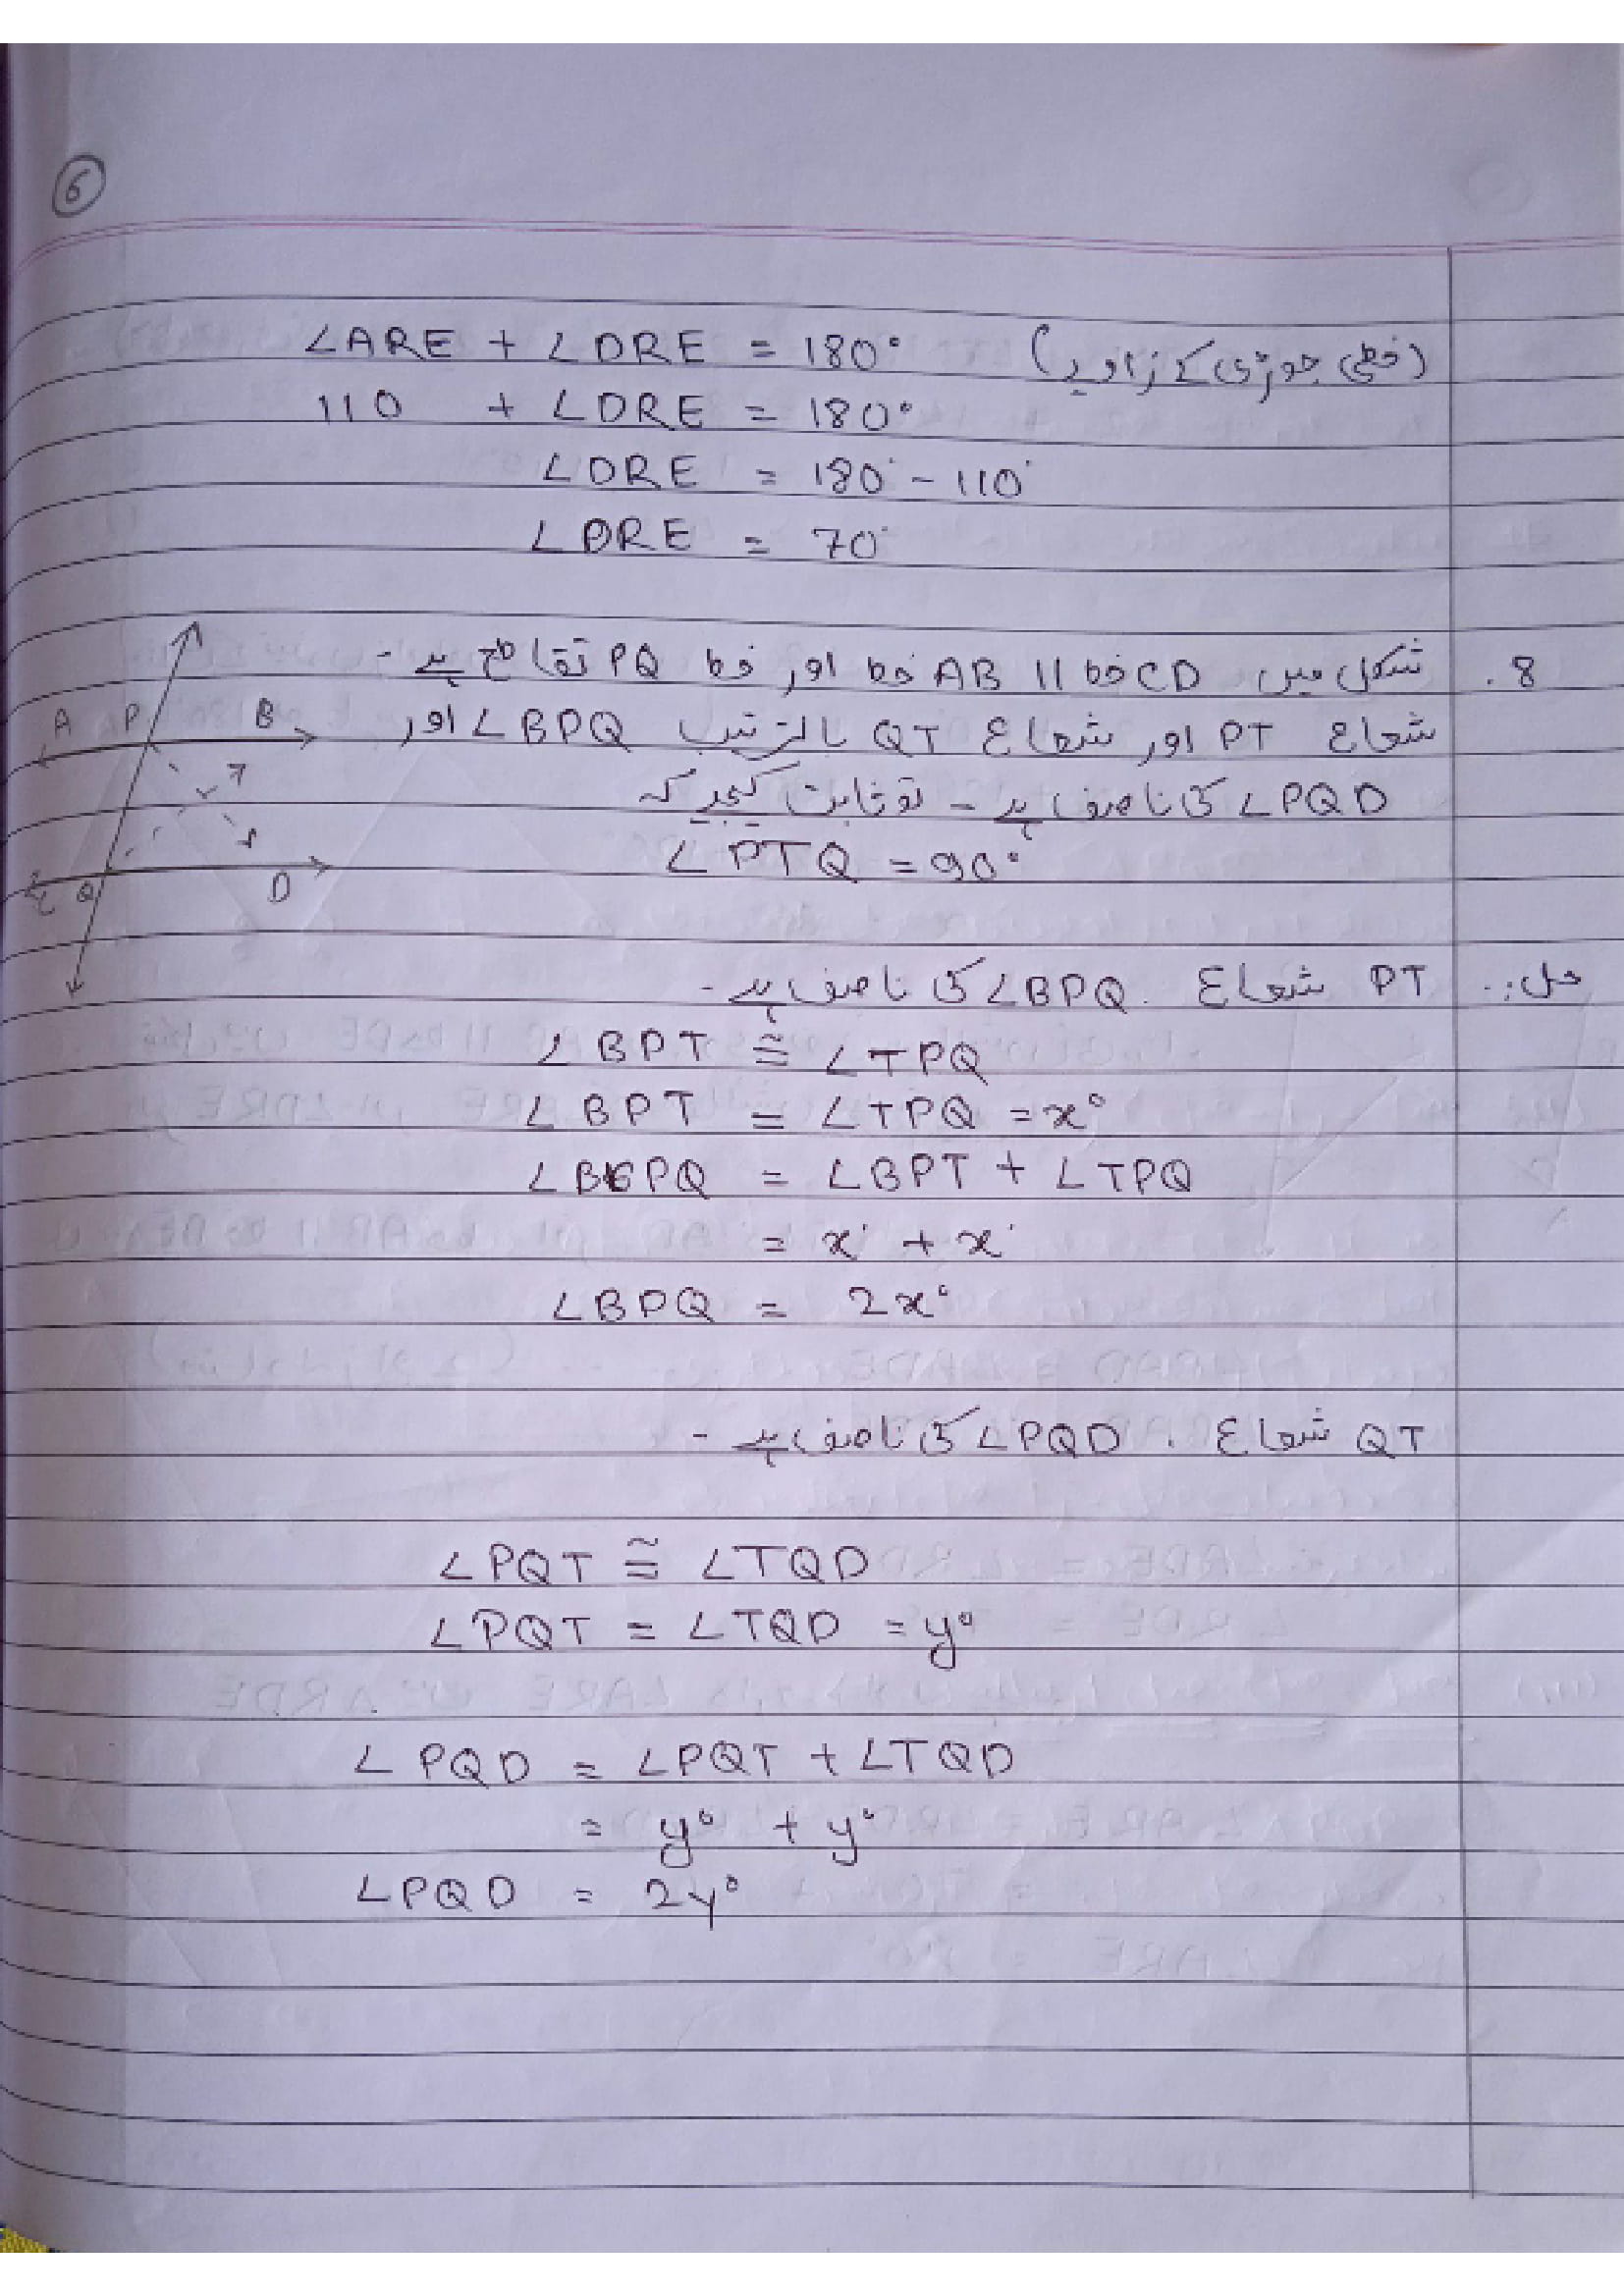 6
∠ARE + ∠DRE = 180° (خطی جوڑی کے زاویے)
110 + ∠DRE = 180°
∠DRE = 180° - 110°
∠DRE = 70°
8. شکل میں CD خط || AB خط اور خط PQ تقاطع ہے -
شعاع PT اور شعاع QT بالترتیب ∠BPQ اور
∠PQD کی ناصف ہے - تو ثابت کیجیے کہ
∠PTQ = 90°
A P B
T
Q D
حل:. PT شعاع . ∠BPQ کی ناصف ہے -
∠BPT ≅ ∠TPQ
∠BPT = ∠TPQ = x°
∠BPQ = ∠BPT + ∠TPQ
= x° + x°
∠BPQ = 2x°
QT شعاع . ∠PQD کی ناصف ہے -
∠PQT ≅ ∠TQD
∠PQT = ∠TQD = y°
∠PQD = ∠PQT + ∠TQD
= y° + y°
∠PQD = 2y°